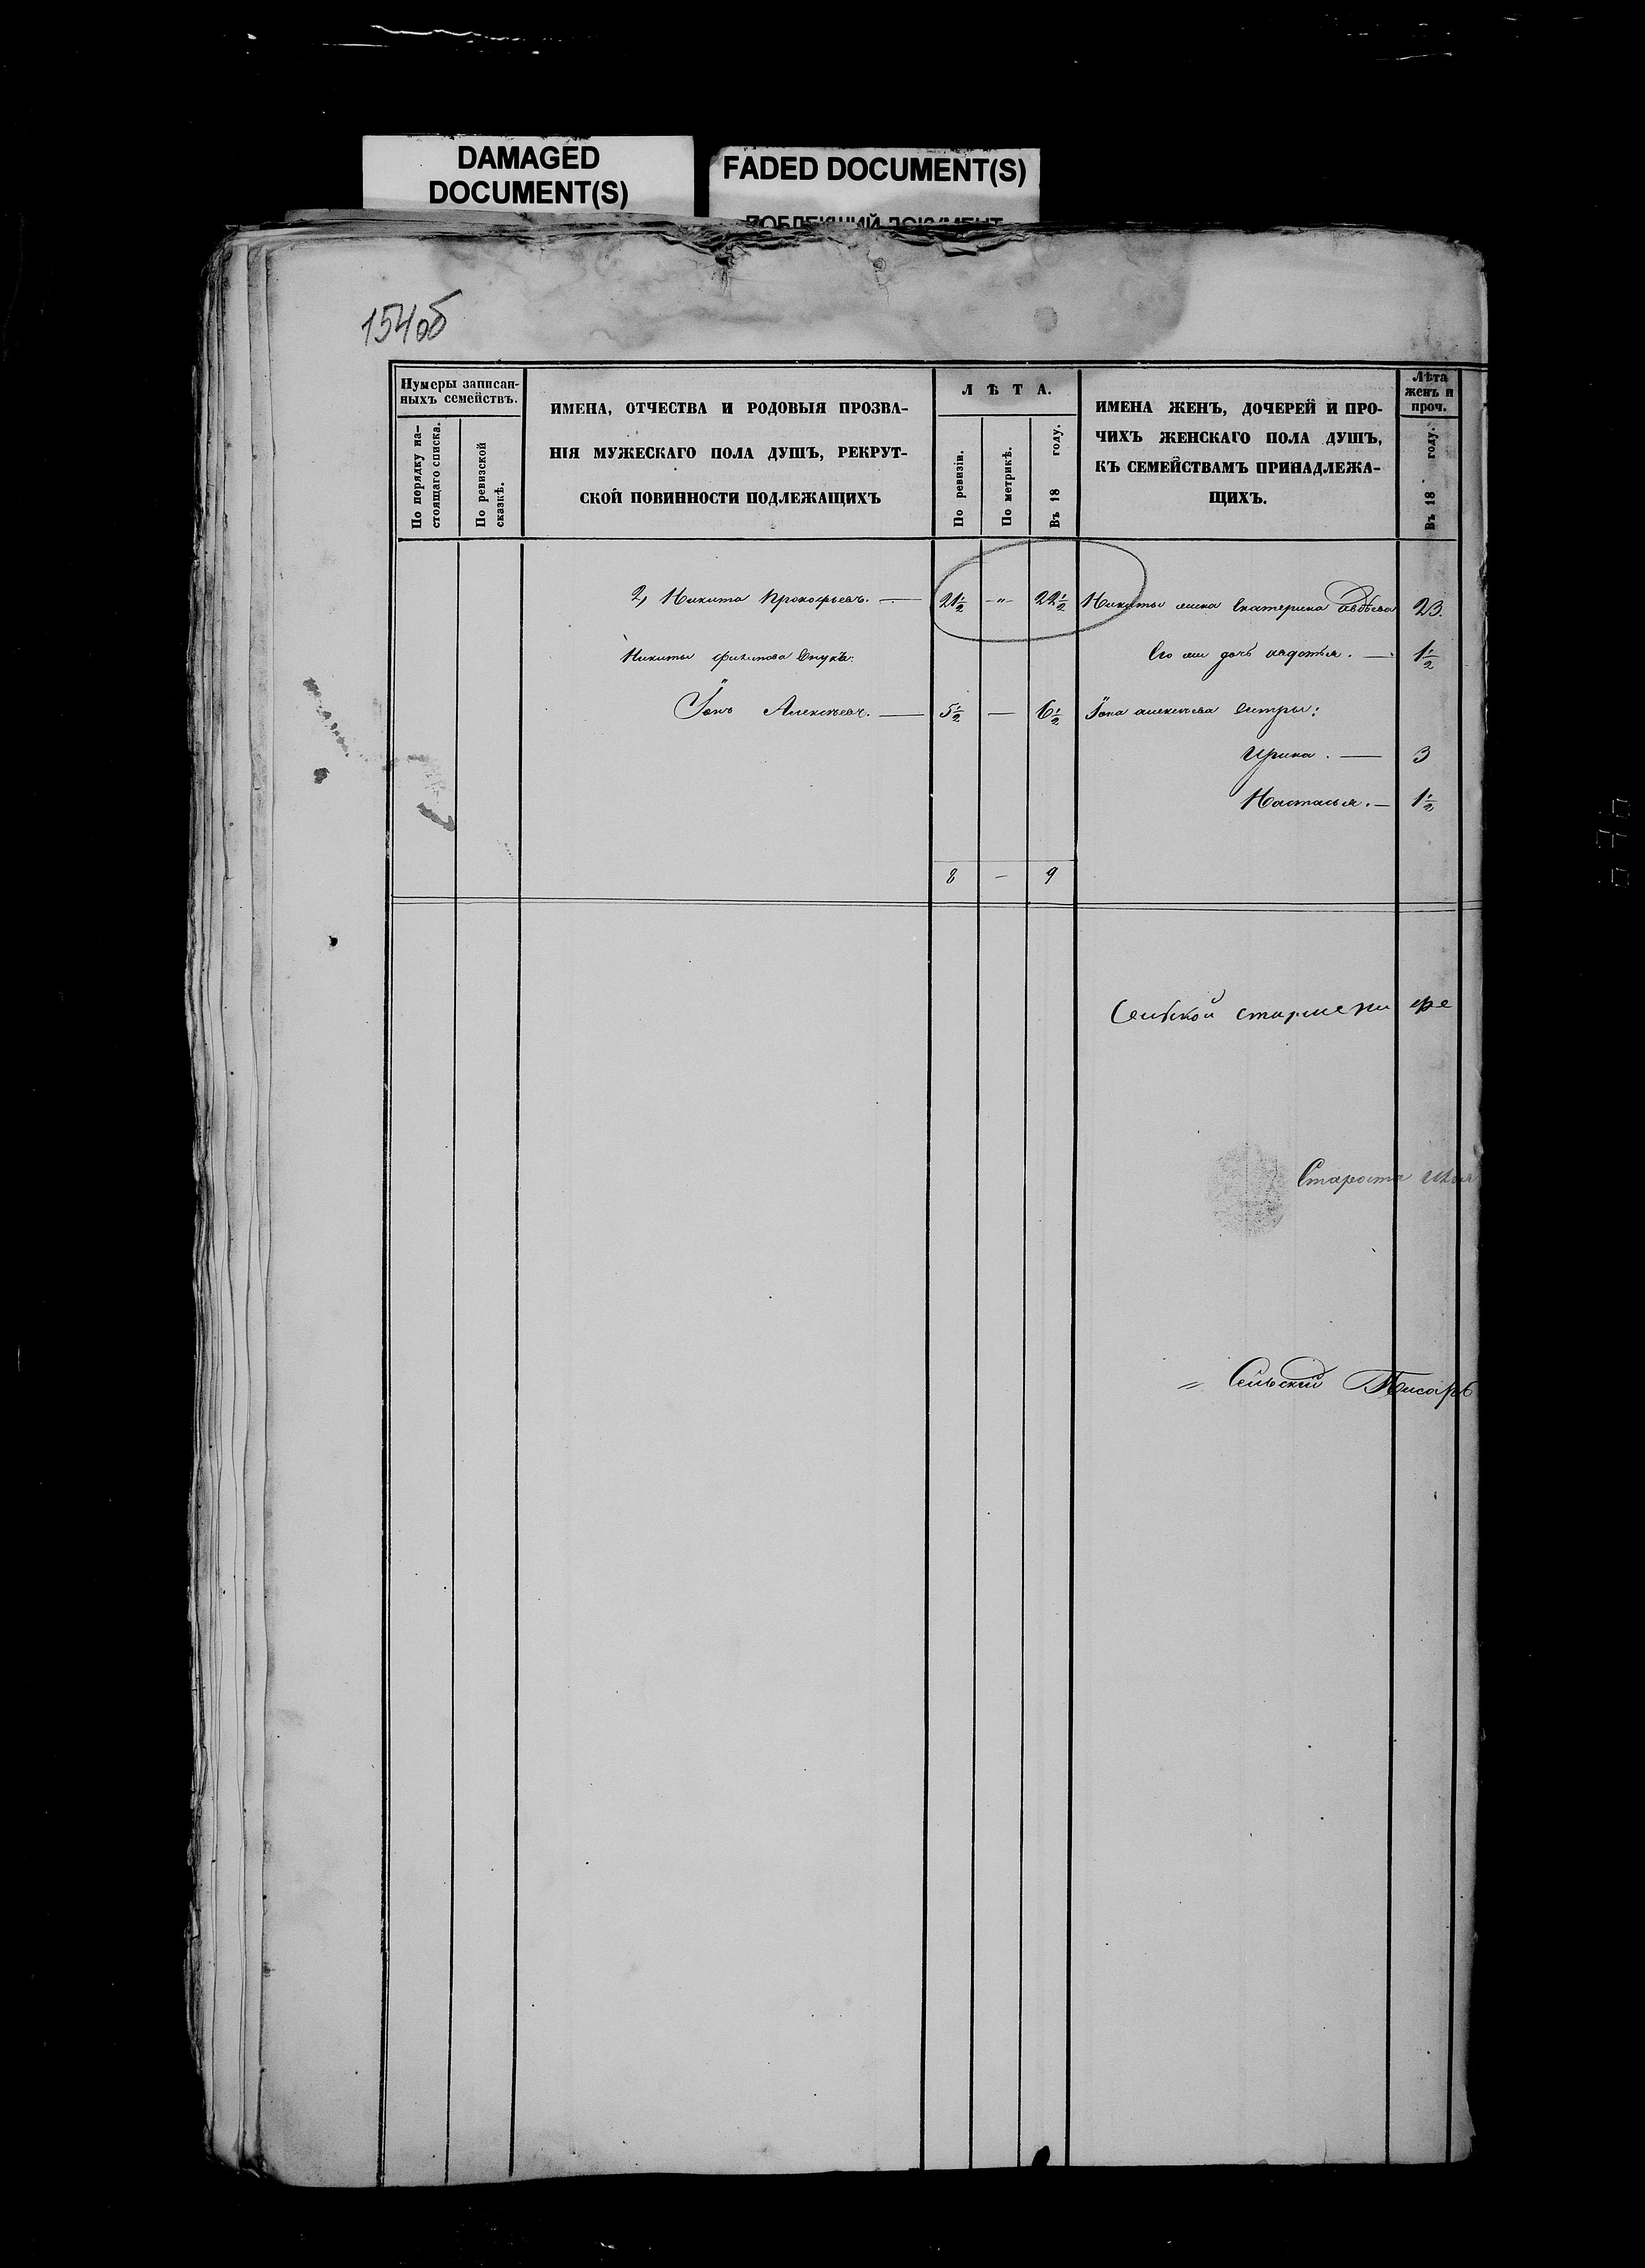 DAMAGED
DOCUMENT(S)
FADED DOCUMENT(S)
154об
Нумеры записан-
ныхъ семействъ.
По порядку на-
стоящаго списка.
По ревизской
сказкѣ.
ИМЕНА, ОТЧЕСТВА И РОДОВЫЯ ПРОЗВА-
НІЯ МУЖЕСКАГО ПОЛА ДУШЪ, РЕКРУТ-
СКОЙ ПОВИННОСТИ ПОДЛЕЖАЩИХЪ
ЛѢТА.
По ревизіи.
По метрикѣ.
Въ 18 году.
ИМЕНА ЖЕНЪ, ДОЧЕРЕЙ И ПРО-
ЧИХЪ ЖЕНСКАГО ПОЛА ДУШЪ,
КЪ СЕМЕЙСТВАМЪ ПРИНАДЛЕЖА-
ЩИХЪ.
Лѣта
женъ и
проч.
Въ 18 году.
2, Никита Прокофьевъ. — 21½ -„- 22½ Никиты жена Екатерина Авдѣева 23.
Никиты Филипова внукъ: Его же дочь Авдотья. — 1½
Іонъ Алексѣевъ. — 5½ — 6½ Іона Алексѣева сестры:
Ирина. — 3
Настасья. — 1½
8 — 9
Сельской
Староста
Сельский Писарь